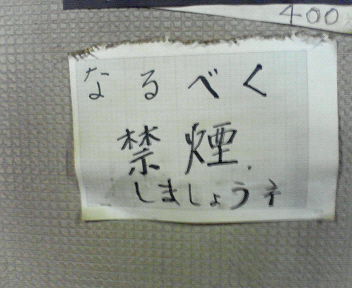 400
なるべく
禁煙
しましょうネ